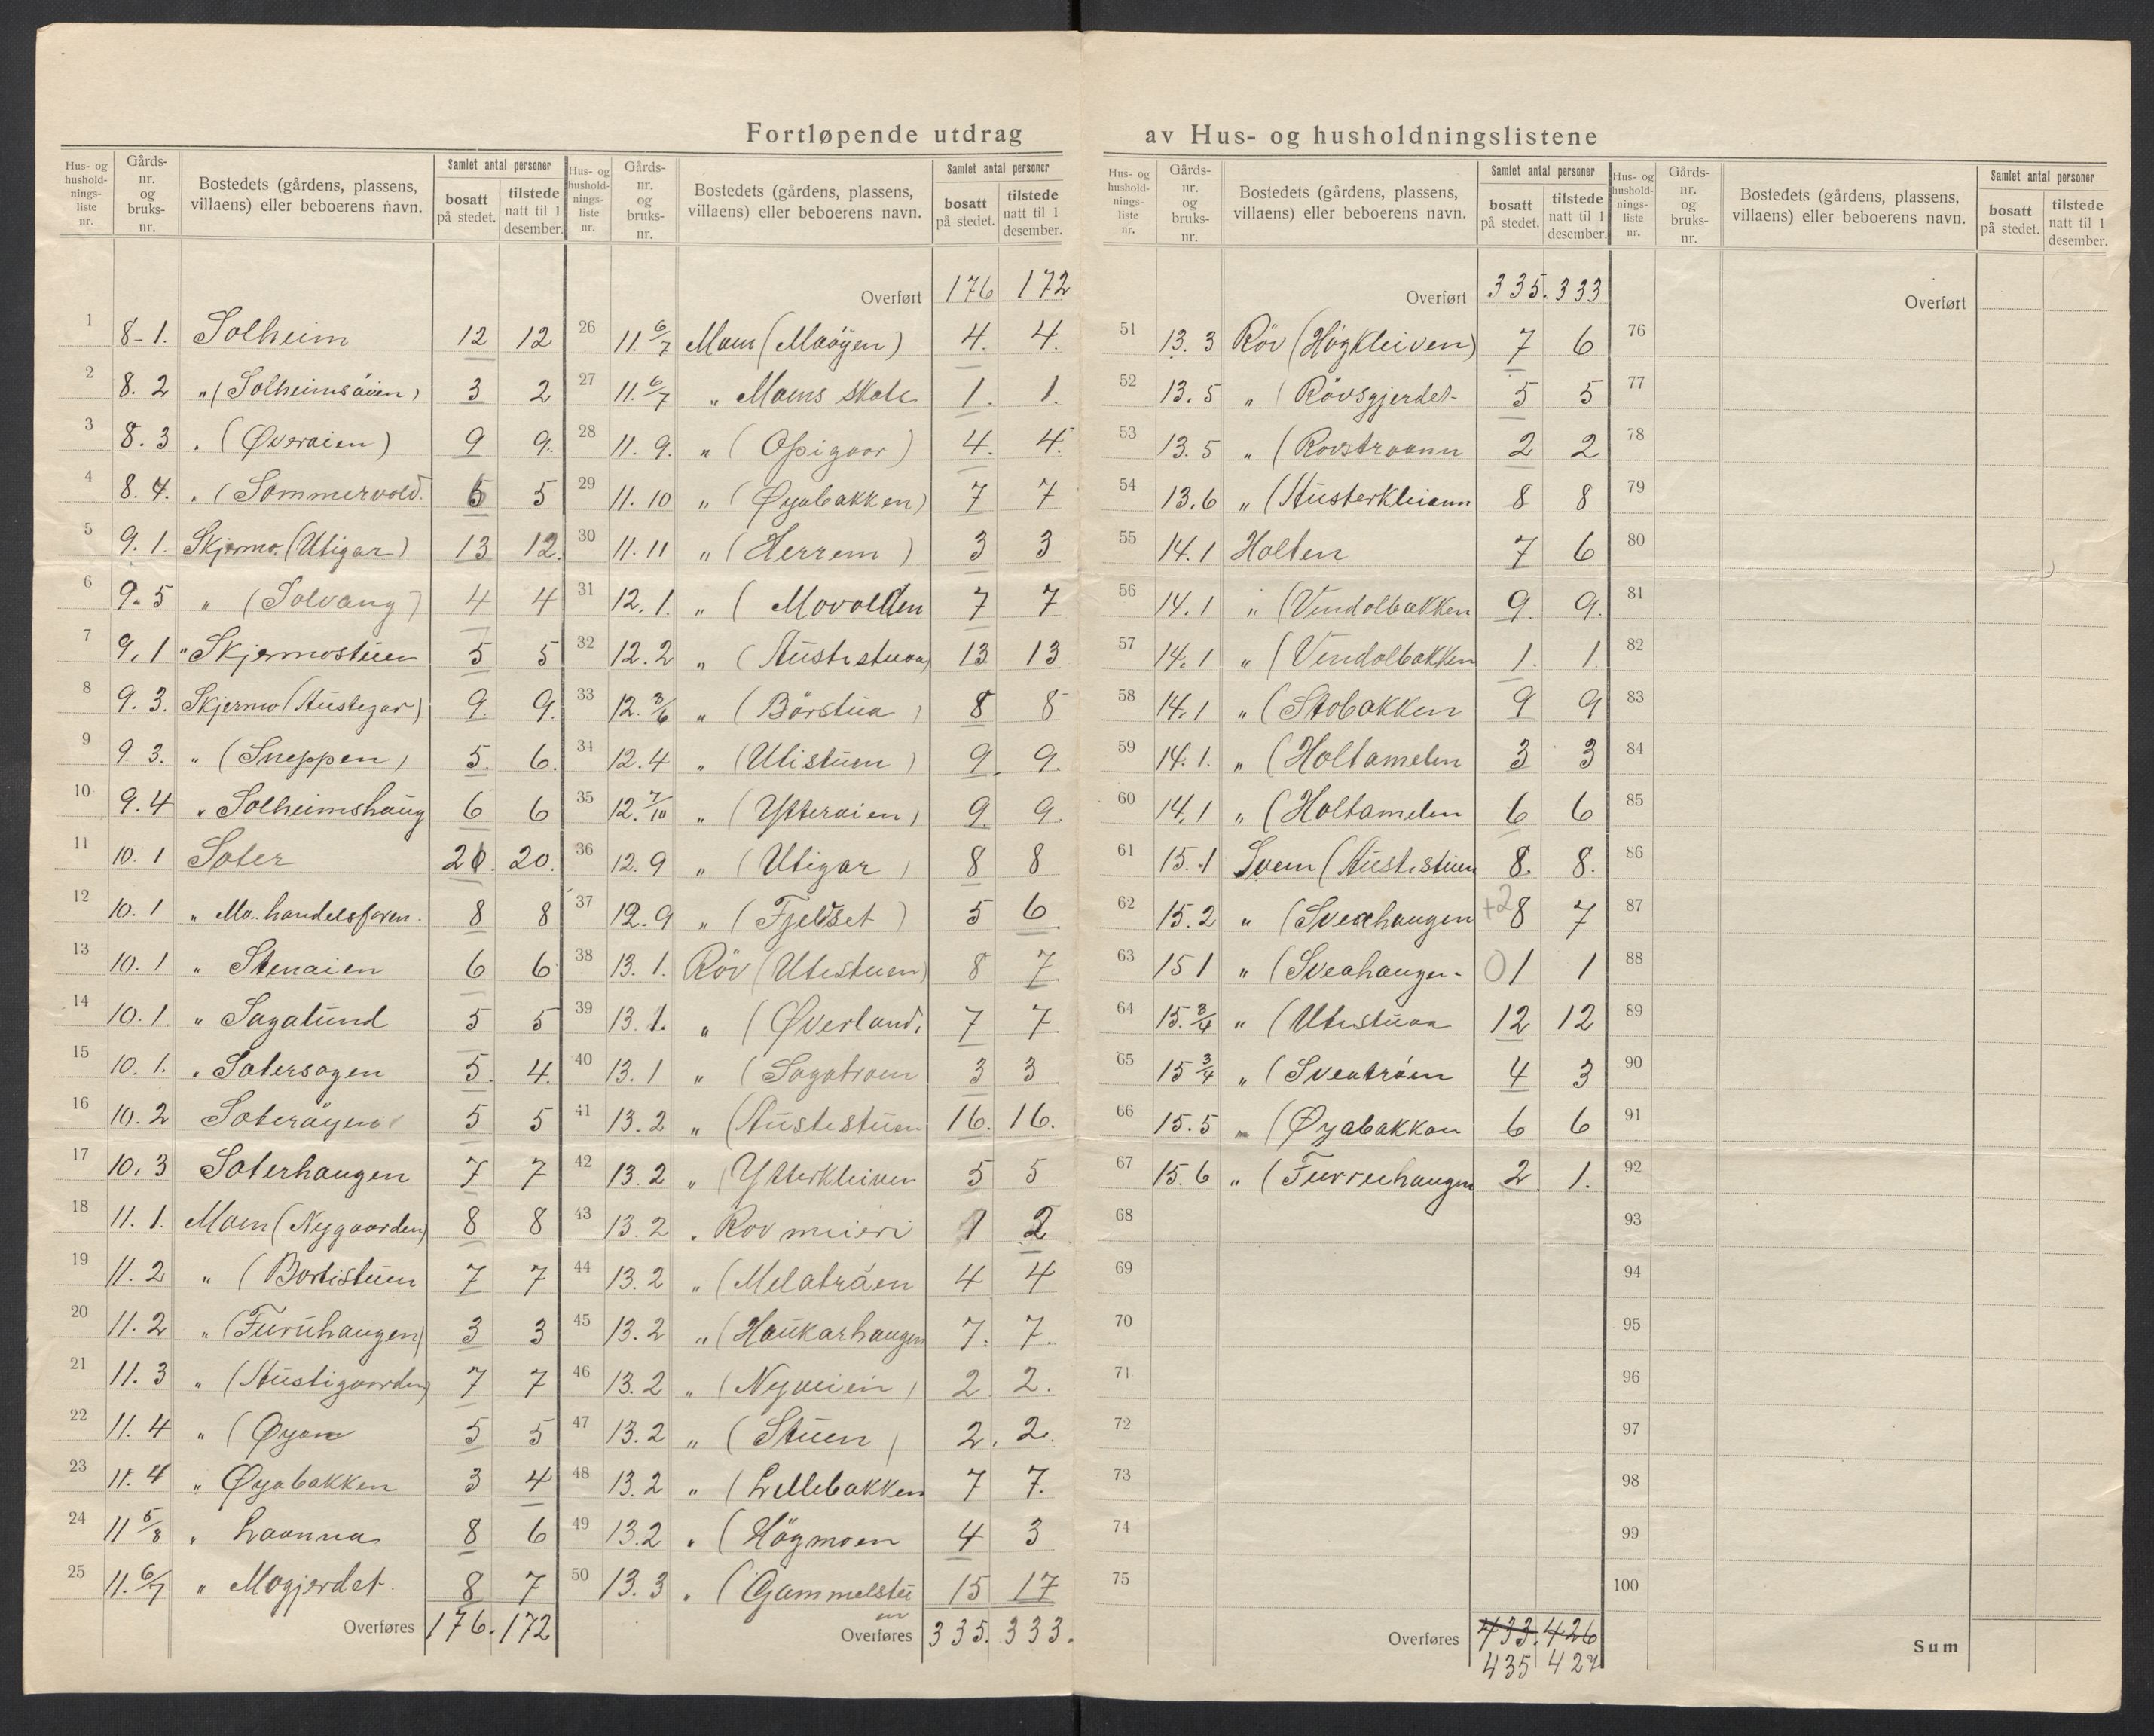 Fortløpende utdrag av Hus- og husholdningslistene
Hus- og hushold-nings-liste nr. Gårds-nr. og bruks-nr. Bostedets (gårdens, plassens, villaens) eller beboerens navn. Samlet antal personer bosatt på stedet. tilstede natt til 1 desember.
1 8-1. Solheim 12 12
2 8. 2 „ (Solheimsåien) 3 2
3 8. 3 „ (Øveraien) 9 9.
4 8. 4. „ (Sommervold. 5 5
5 9. 1. Skjermo. (Utigar) 13 12.
6 9. 5 „ (Solvang) 4 4
7 9. 1 „ Skjermostuen 5 5
8 9. 3. Skjermo (Austegar) 9. 9.
9 9. 3. „ (Sneppen) 5. 6.
10 9. 4 „ Solheimshaug 6 6
11 10. 1 Sæter 20. 20.
12 10. 1 „ Mo. handelsforen. 8 8
13 10. 1 „ Stenaien 6 6
14 10. 1. „ Sagalund 5 5
15 10. 1. „ Satersagen 5. 4.
16 10. 2 Saterøyen 5 5
17 10. 3 Saterhaugen 7 7
18 11. 1. Moen (Nygaarden) 8 8
19 11. 2 „ (Bortistuen 7 7
20 11. 2 „ (Furuhaugen) 3 3
21 11. 3 „ (Austigaarden) 7 7
22 11. 4 „ (Øyan 5 5
23 11. 4 „ Øyabakken 3 4
24 11 5/8 „ Laanna 8 6
25 11. 6/7 „ Mogjerdet. 8 7
Overføres 176. 172
Hus- og hushold-nings-liste nr. Gårds-nr. og bruks-nr. Bostedets (gårdens, plassens, villaens) eller beboerens navn. Samlet antal personer bosatt på stedet. tilstede natt til 1 desember.
Overført 176 172
26 11. 6/7 Moen (Maøyen) 4. 4.
27 11. 6/7 „ Moens skole 1. 1.
28 11. 9. „ (Opigaar) 4. 4.
29 11. 10 „ (Øyabakken) 7 7
30 11. 11 „ (Herrem) 3 3
31 12. 1. „ (Movolden 7 7
32 12. 2 „ (Austistuaa) 13 13
33 12. 3/6 „ (Börstua) 8 8
34 12. 4 „ (Utistuen) 9. 9.
35 12. 7/10 „ (Ytteraien) 9. 9.
36 12. 9 „ (Utigar) 8 8
37 12. 9 „ (Fjeldset) 5 6
38 13. 1. Röv (Utistuen) 8 7
39 13. 1. „ (Øverland. 7 7
40 13. 1 „ (Sagatroen 3 3
41 13. 2 „ (Austistuen 16. 16.
42 13. 2 „ (Ytterkleiven 5 5
43 13. 2 „ Rov meieri 1 2
44 13. 2 „ (Melatråen 4 4
45 13. 2 „ (Haukarhaugen 7. 7.
46 13. 2 „ (Nyveien) 2 2.
47 13. 2 „ (Stuen) 2. 2.
48 13. 2 „ (Lillebakken 7 7.
49 13. 2 „ (Högmoen 4 3
50 13. 3 „ (Gammelstu 15 17
en
Overføres 335. 333.
Hus- og hushold-nings-liste nr. Gårds-nr. og bruks-nr. Bostedets (gårdens, plassens, villaens) eller beboerens navn. Samlet antal personer bosatt på stedet. tilstede natt til 1 desember.
Overført 335. 333
51 13. 3 Röv (Högkleiven) 7 6
52 13. 5 „ (Rövsgjerdet 5 5
53 13. 5 „ (Rovstraann 2 2
54 13. 6 „ (Austerkleiann 8 8
55 14. 1 Holten 7 6
56 14. 1 „ (Vindolbakken 9. 9.
57 14. 1 „ (Vindolbakken 1. 1
58 14. 1 „ (Stobakken 9 9
59 14. 1. „ (Holtamelen 3 3
60 14. 1 „ (Holtamelen 6 6
61 15. 1 Svem (Austistuen 8. 8.
62 15. 2 „ (Sveahaugen +2 8 7
63 15 1 „ (Sveahaugen 0 1 1
64 15. 3/4 „ (Utistuaa 12 12
65 15 3/4 „ (Sveatröen 4 3
66 15. 5 „ (Øyabakkan 6 6
67 15. 6 „ (Furruhaugen 2. 1.
68
69
70
71
72
73
74
75
Overføres 433. 426
435 427
Hus- og hushold-nings-liste nr. Gårds-nr. og bruks-nr. Bostedets (gårdens, plassens, villaens) eller beboerens navn. Samlet antal personer bosatt på stedet. tilstede natt til 1 desember.
Overført
76
77
78
79
80
81
82
83
84
85
86
87
88
89
90
91
92
93
94
95
96
97
98
99
100
Sum